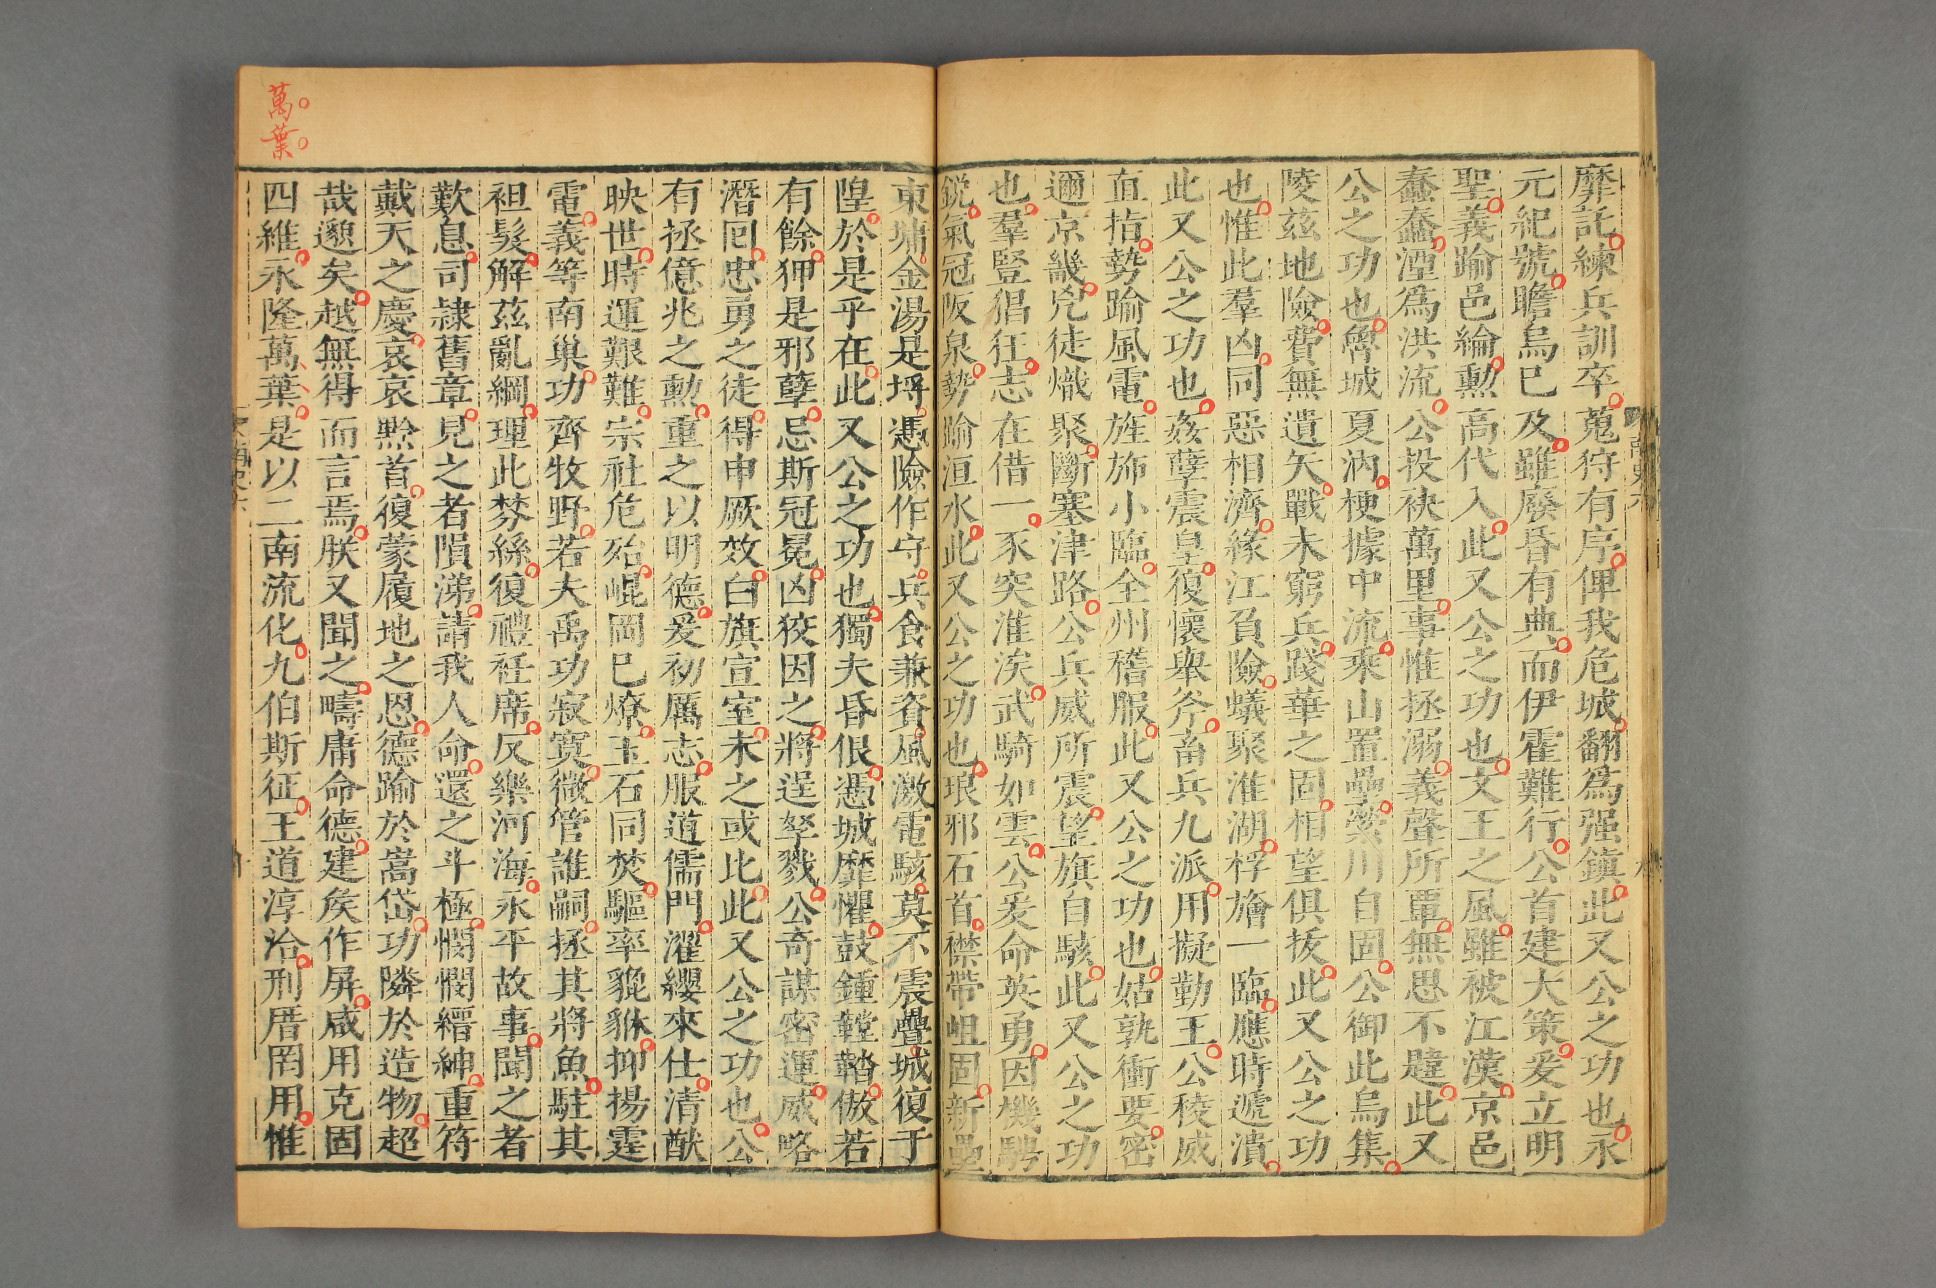 靡託練兵訓卒蒐狩有序俾我危城翻爲强鎮此又公之功也永
元紀號瞻烏已及雖廢昏有典而伊霍難行公首建大策爰立明
聖義踰邑綸勲高代入此又公之功也文王之風雖被江漢京邑
蠢蠢湮爲洪流公投袂萬里事惟拯溺義聲所覃無思不韙此又
公之功也魯城夏汭梗據中流乘山置壘縈川自固公御此烏集
陵茲地險費無遺矢戰未窮兵踐華之固相望俱拔此又公之功
也惟此羣凶同惡相濟緣江負險蟻聚淮湖桴旝一臨應時遞潰
此又公之功也姦孽震皇復懷舉斧畜兵九派用擬勤王公稜威
直指勢踰風電旌斾小臨全州稽服此又公之功也姑孰衝要密
邇京畿兇徒熾聚斷塞津路公兵威所震望旗自駭此又公之功
也羣豎倡狂志在借一豕突淮涘武騎如雲公爰命英勇因機騁
銳氣冠阪泉勢踰洹水此又公之功也琅邪石首襟帶岨固新壘
東墉金湯是埒憑險作守兵食兼資風激電駭莫不震疊城復于
隍於是乎在此又公之功也獨夫昏佷憑城靡懼鼓鍾鞺鞳傲若
有餘狎是邪孽忌斯冠冕凶狡因之將逞孥戮公奇謀密運威略
潛回忠勇之徒得申厥效白旗宣室未之或比此又公之功也公
有拯億兆之勲重之以明德爰初厲志服道儒門濯纓來仕清猷
映世時運艱難宗社危殆崐岡已燎玉石同焚驅率貔貅抑揚霆
電義等南巢功齊牧野若夫禹功寂寞微管誰嗣拯其將魚駐其
袒髮解茲亂綱理此棼絲復禮衽席反樂河海永平故事聞之者
歎息司隷舊章見之者隕涕請我人命還之斗極憫憫縉紳重符
戴天之慶哀哀黔首復蒙履地之恩德踰於嵩岱功隣於造物超
哉邈矣越無得而言焉朕又聞之疇庸命德建矦作屏咸用克固
四維永隆萬葉是以二南流化九伯斯征王道淳洽刑厝罔用惟
萬葉